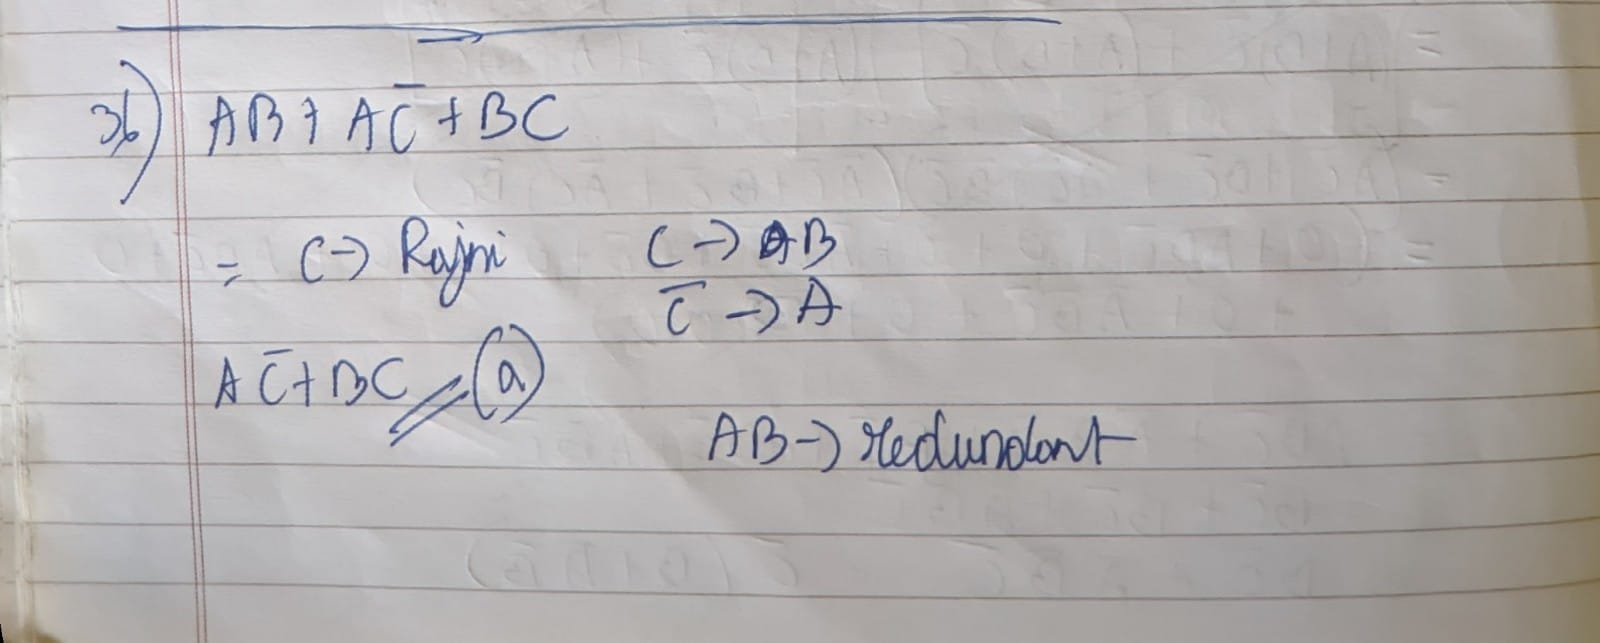 36) AB + AC̅ + BC
= C → Rajni C → B
C̅ → A
AC̅ + BC (a)
AB → redundant